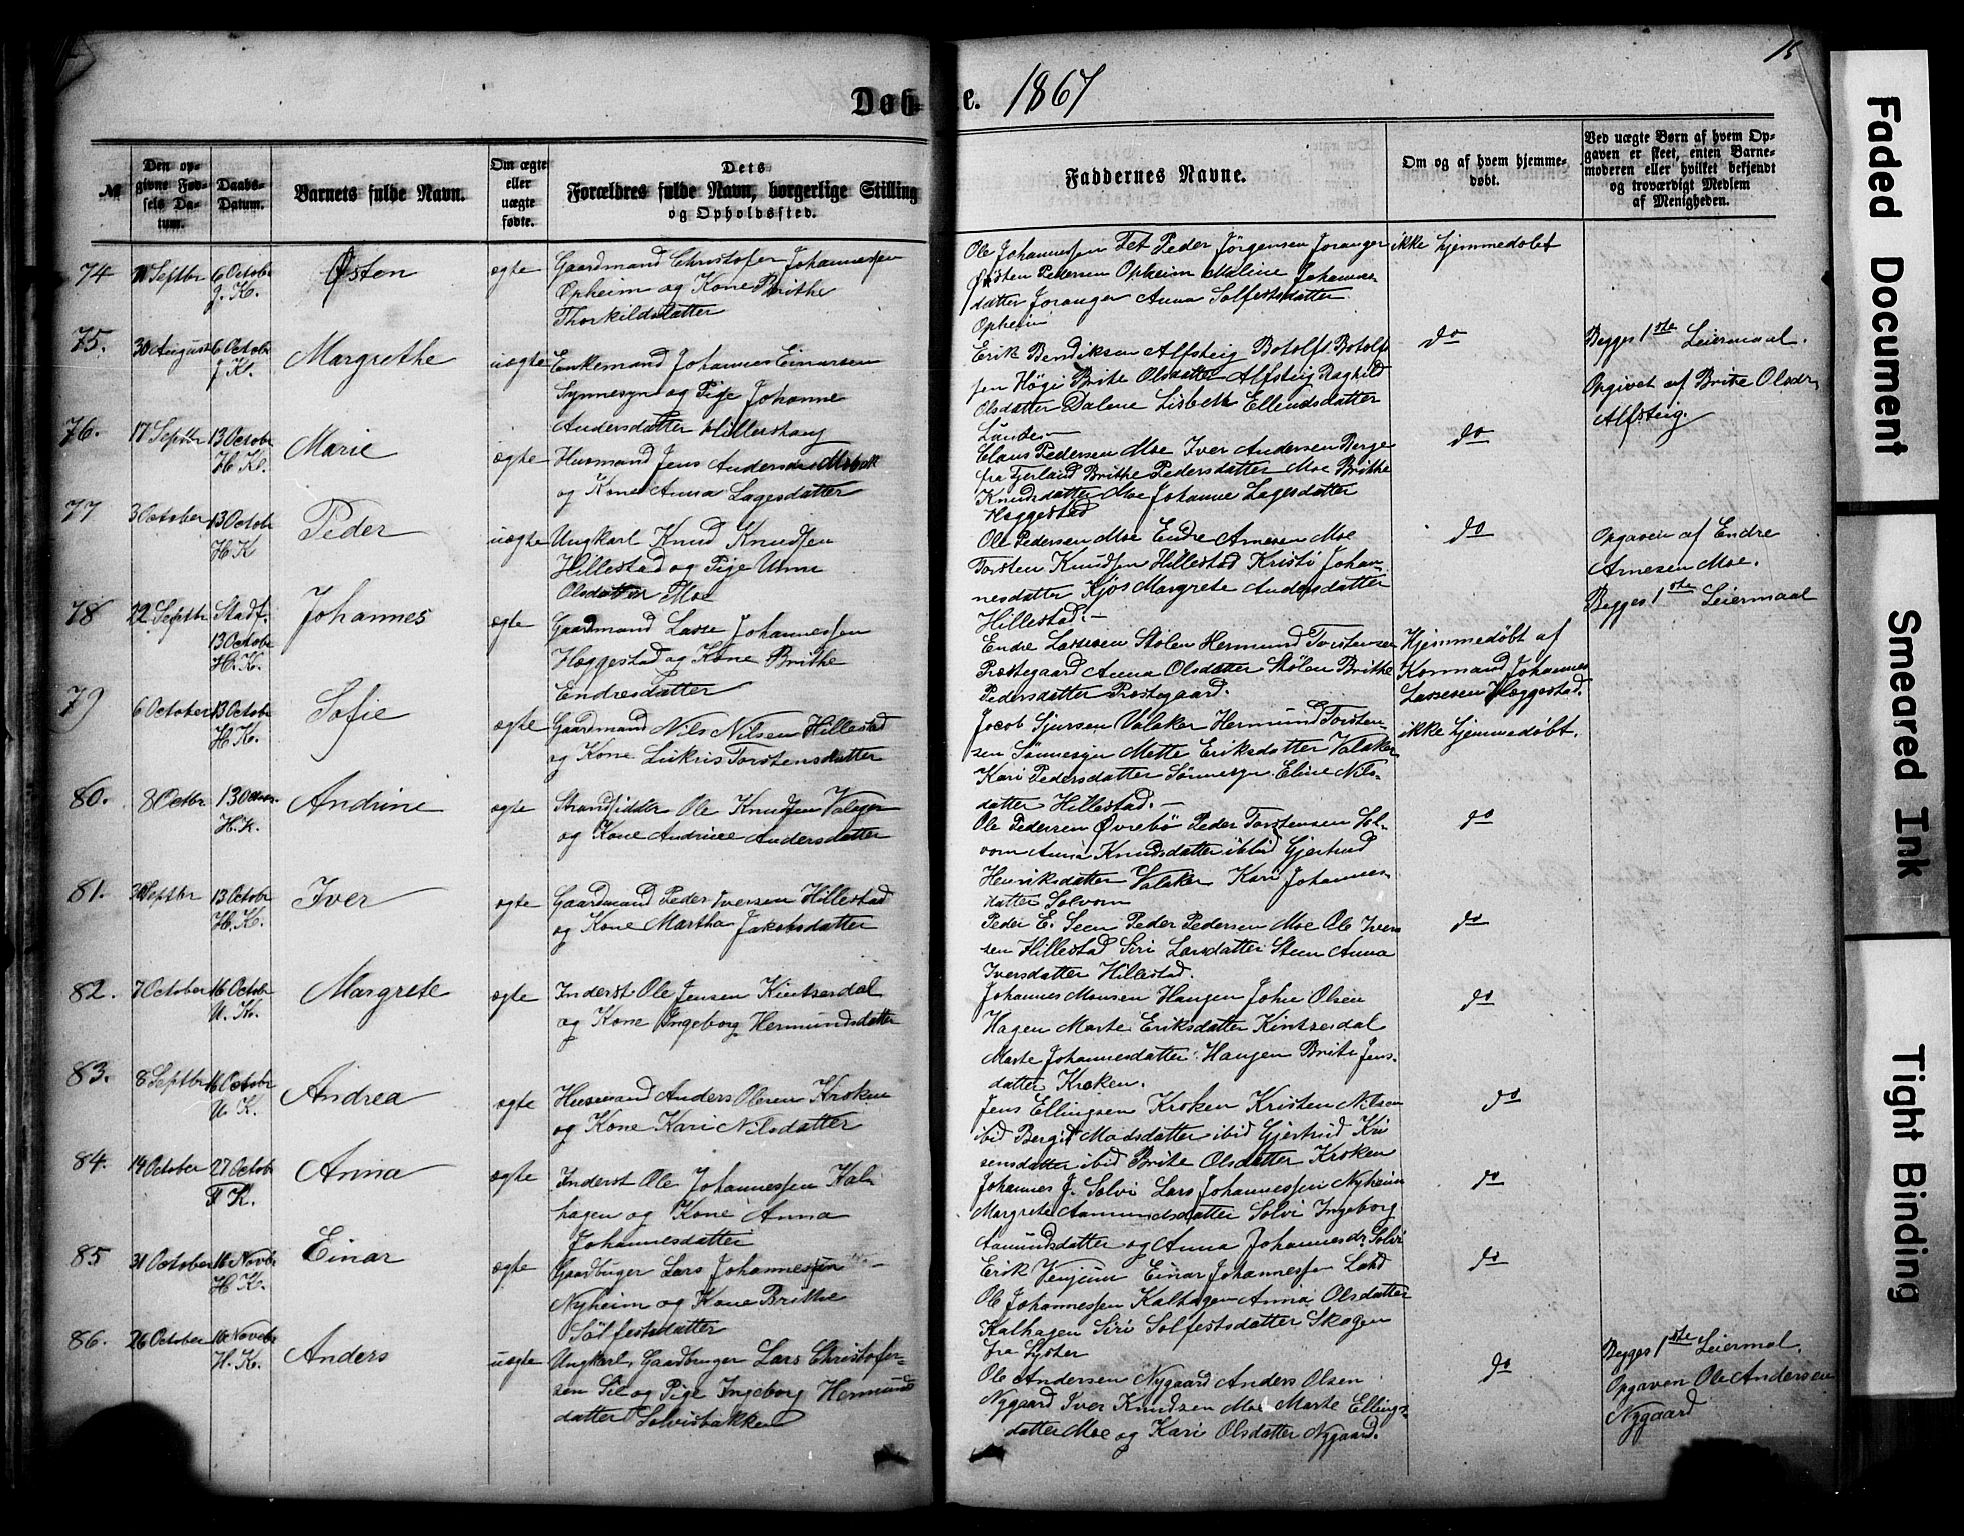 15
Døbte. 1867
№
Den opgivne Fødsels Datum.
Daabs-Datum.
Barnets fulde Navn.
Om ægte eller uægte fødte.
Dets Forældres fulde Navn, borgerlige Stilling og Opholdssted.
Faddernes Navne.
Om og af hvem hjemmedøbt.
Ved uægte Børn af hvem Opgaven er skeet, enten Barnemoderen eller hvilket bekjendt og troværdigt Medlem af Menigheden.
74 Septbr 6 October J. K. Østen ægte
Gaardmand Christofer Johannessen
Opheim og Kone Brithe
Thorkildsdatter
Ole Johannessen Fet Peder Jörgensen Joranger
Østen Pedersen Opheim Maline Johannes-
datter Joranger Anna Solfestsdatter
Opheim
ikke hjemmedøbt
75. 30 August 6 Octobr J. K. Margrethe uægte
Enkemand Johannes Einarsen
Synnesyn og Pige Johanne
Andersdatter Hillershaug
Erik Bendiksen Alfsteig Botolf Botolf-
sen Högi Brite Olsdatter Alfsteig Raghild
Olsdatter Dalene Lisbeth Ellendsdatter
do
Begges 1ste Leiermaal.
Opgivet af Brite Olsdr
Alfsteig.
76. 17 Septbr 13 Octobr H. K. Marie ægte
Husmand Jens Andersen
og Kone Anna Lagesdatter
Claus Pedersen Moe Iver Andersen Berge
fra Fjerland Brithe Pedersdatter Moe Brithe
Knudsdatter Moe Johanne Lagesdatter
Heggestad
do
77 3 October 13 Octobr H. K Peder uægte
Ungkarl Knud Knudsen
Hillestad og Pige Unni
Olsdatter Moe
Ole Pedersen Moe Endre Arnesen Moe
Torsten Knudsen Hillestad Kristi Johan-
nesdatter Kjos Margrete Andersdatter
Hillestad.-
do
Opgaven af Endre
Arnesen Moe.
Begges 1ste Leiermaal
78 22 Septbr Stadf. 13 Octobr H. K. Johannes ægte
Gaardmand Lasse Johannessen
Heggestad og Kone Brithe
Endresdatter
Endre Lassesen Stölen Hermund Torstensen
Præstegaard Anna Olsdatter Stølen Brithe
Pedersdatter Præstegaard.
Hjemmedøbt af
Kormand Johannes
Lassesen Heggestad.
79 6 October 13 Octobr H. K. Sofie ægte
Gaardmand Nils Nilsen Hillestad
og Kone Lukris Torstensdatter
Jocob Sjursen Valaker Hermund Torsten-
sen Sønnesyn Mette Eriksdatter Valaker
Kari Pedersdatter Sønnesyn Eline Nils-
datter Hillestad.-
ikke hjemmedøbt.
80. 8 Octbr 13 H. K. Andrine ægte
Strandsidder Ole Knudsen
og Kone Andrine Andersdatter
Ole Pedersen Øvrebö Peder Torstensen Sol-
vorn Anna Knudsdatter ibid Gjertrud
Henriksdatter Valaker Kari Johannes-
datter Solvorn
do
81. Septbr 13 Octobr H. K. Iver ægte
Gaardmand Peder Iversen Hillestad
og Kone Martha Jakobsdatter
Peder E. Seen Peder Pedersen Moe Ole Iver-
sen Hillestad Siri Larsdatter Steen Anna
Iversdatter Hillestad.
do
82. 7 October 16 Octobr U. K. Margrete ægte
Inderst Ole Jensen Kintzerdal
og Kone Ingeborg Hermundsdatter
Johannes Monsen Haugen John Olsen
Hagen Marte Eriksdatter Kintzerdal
Marte Johannesdatter Haugen Brite Jens-
datter Kroken.
do
83. 8 Septbr 16 Octobr U. K. Andrea ægte
Husmand Anders Olesen Kroken
og Kone Kari Nilsdatter
Jens Ellingsen Kroken Kristen Nilsen
ibid Bergit Madsdatter ibid Gjertrud Kri
sensdatter ibid Brite Olsdatter Kroken
do
84. 14 October 27 Octobr F K. Anna ægte
Inderst Ole Johannessen Kal-
hagen og Kone Anna
Johannesdatter
Johannes J. Solvi Lars Johannessen Nyheim
Margrete Aamundsdatter Solvi Ingeborg
Aamundsdatter og Anna Johannesdr Solvi
do
85 31 October 10 Novbr H. K. Einar ægte
Gaardbruger Lars Johannessen
Nyheim og Kone Brithe
Sölfestsdatter
Erik Venjum Einar Johannessen
Ole Johannessen Kalhagen Anna Olsdatter
Kalhagen Siri Solfestsdatter Skogen
fra Lyster
do
86. 26 October Novbr H. K. Anders uægte
Ungkarl, Gaardbruger Lars Christofer-
sen Sil og Pige Ingeborg Hermunds
datter Solvisbakken
Ole Andersen Nygaard Anders Olsen
Nygaard Iver Knudsen Moe Marte Ellings-
datter Moe og Kari Olsdatter Nygaard.
do
Begges 1ste Leiermal.
Opgaven Ole Andersen
Nygaard
Faded Document
Smeared Ink
Tight Binding